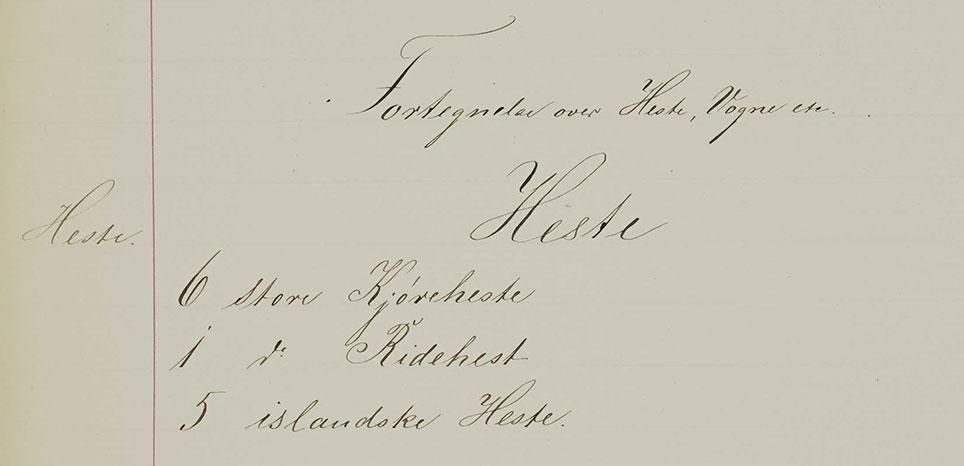 Fortegnelse over Heste, Vogne etc.
Heste
Heste.
6 store Kjøreheste
1 do Ridehest
5 islandske Heste.